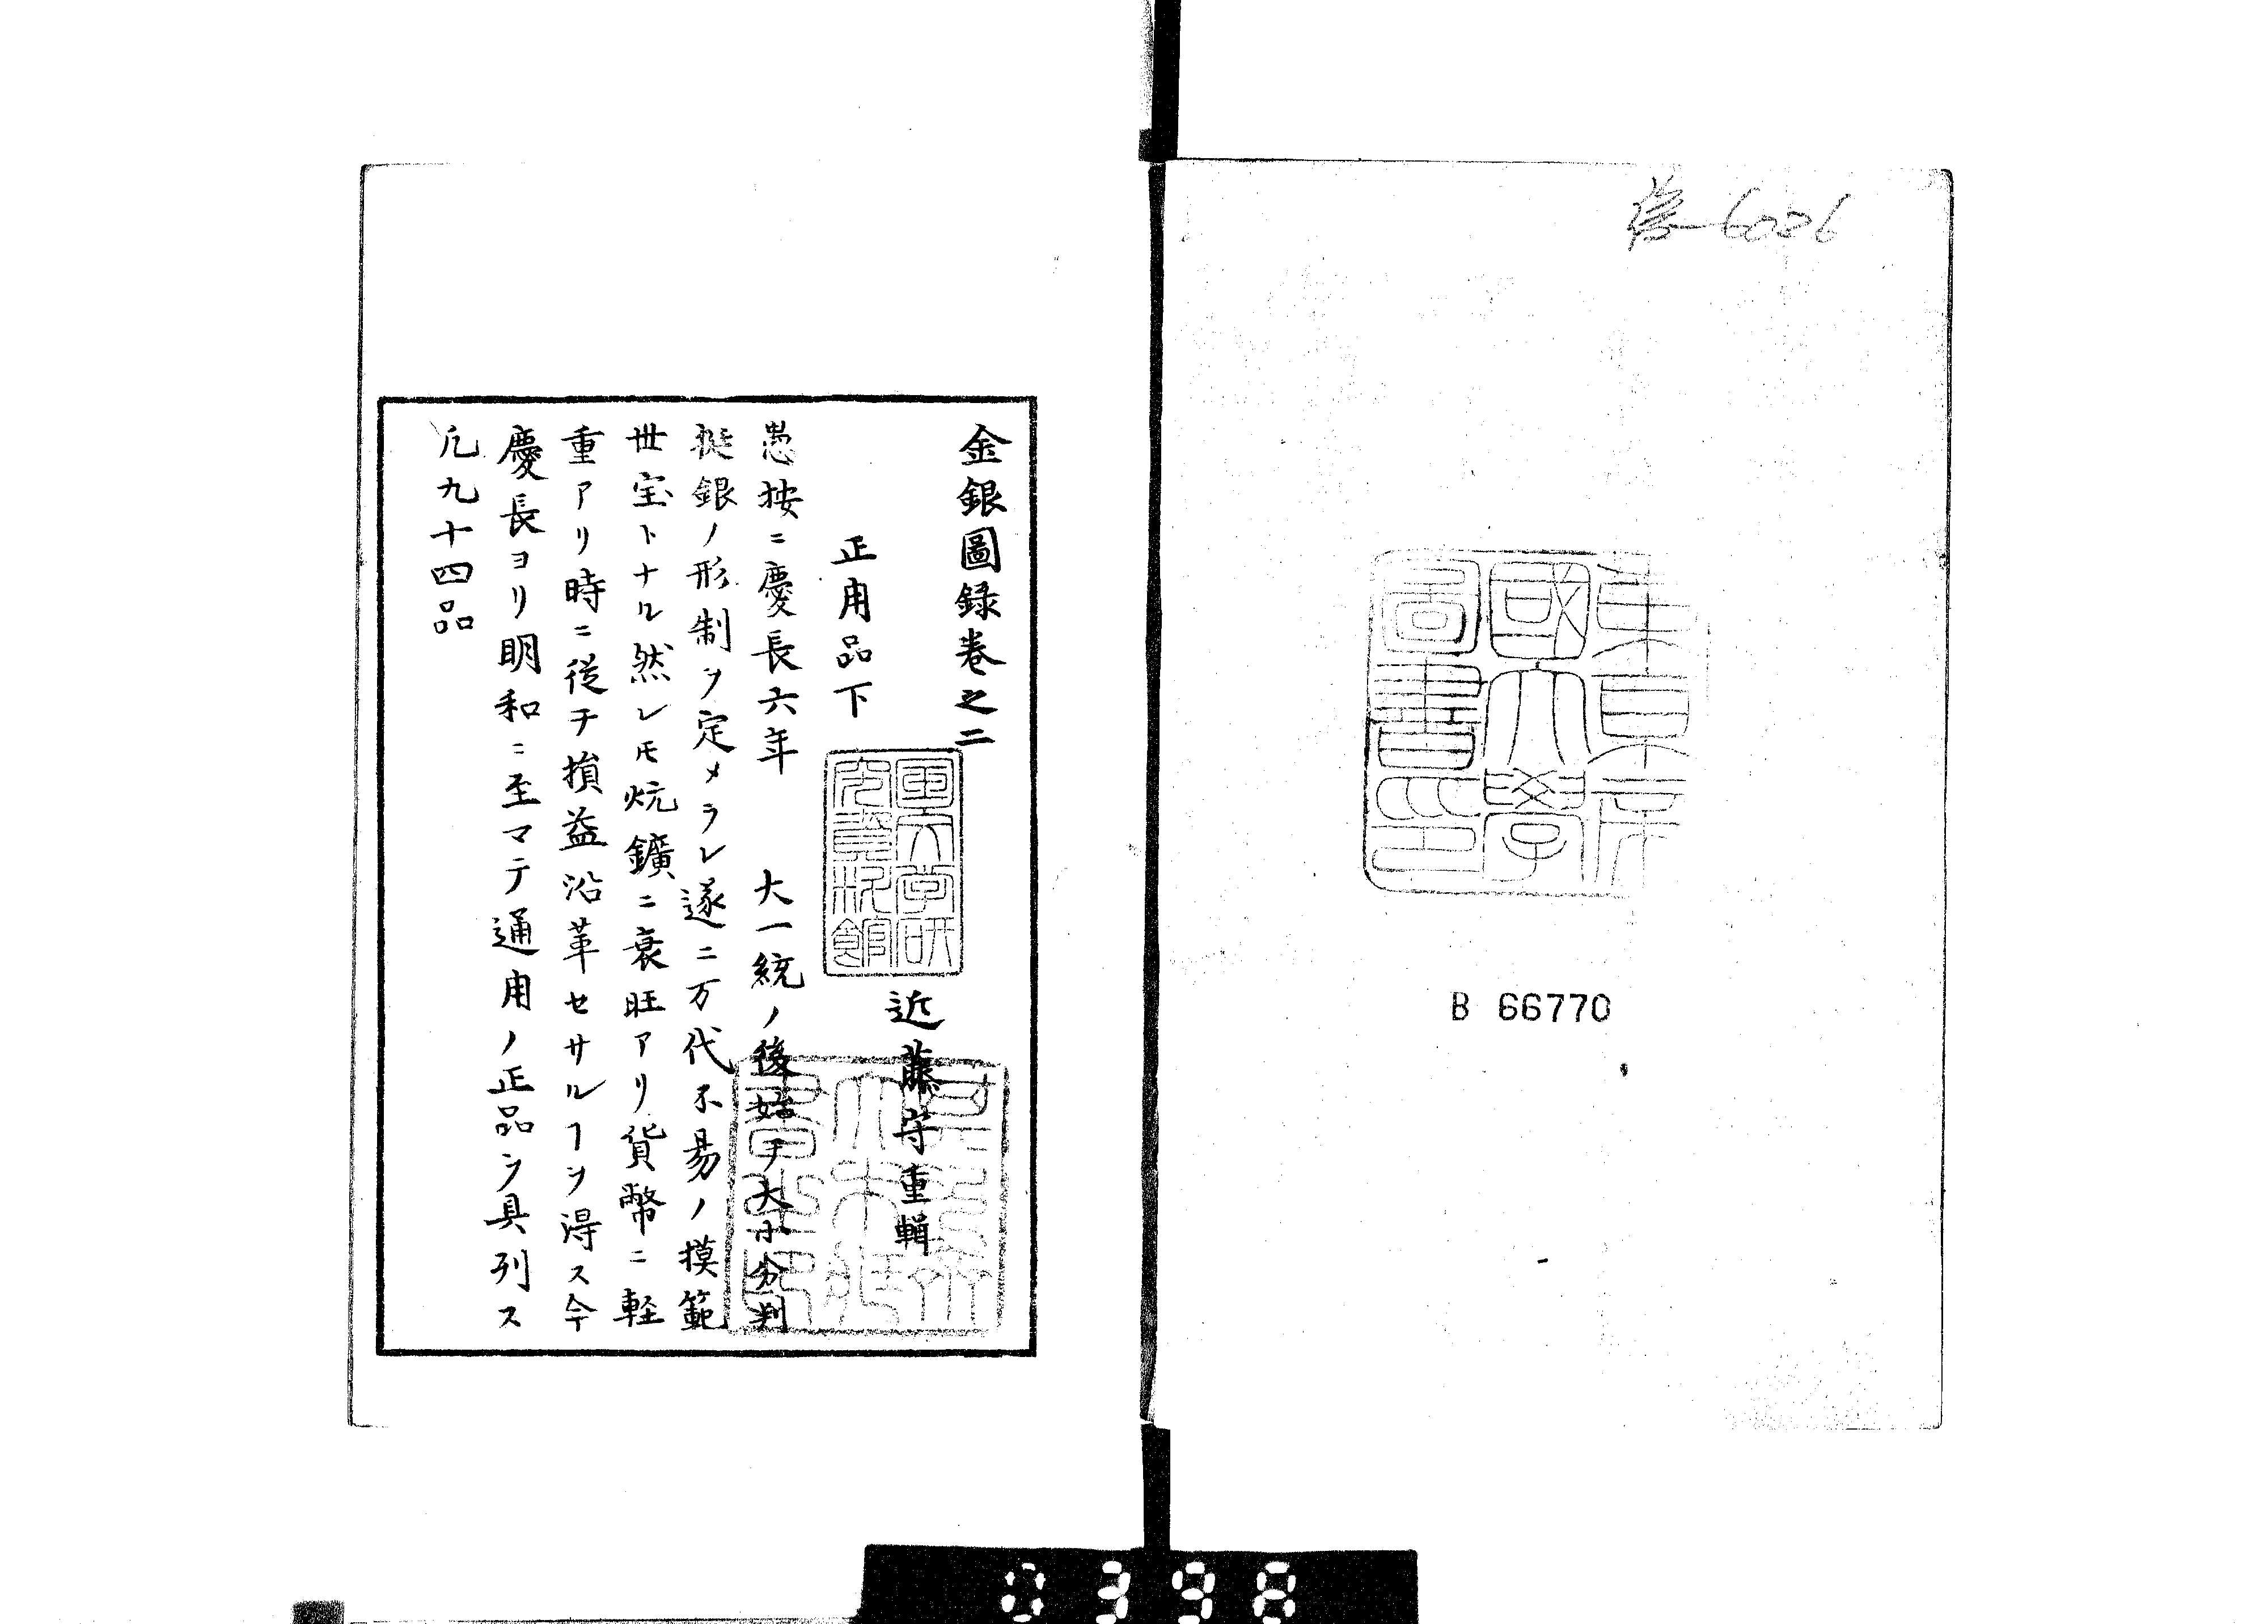 B 66770
金銀圖録巻之二
近藤守重輯
正用品下
愚按ニ慶長六年　大一統ノ後始テ大小分判
挺銀ノ形制ヲ定メラレ遂ニ万代不易ノ摸範
世宝トナル然レ𪜈炕鑛ニ衰旺アリ貨幣ニ軽
重アリ時ニ従テ損益沿革セサルヿヲ得ス今
慶長ヨリ明和ニ至マテ通用ノ正品ヲ具列ス
凡九十四品
東京帝國大學圖書印
0398